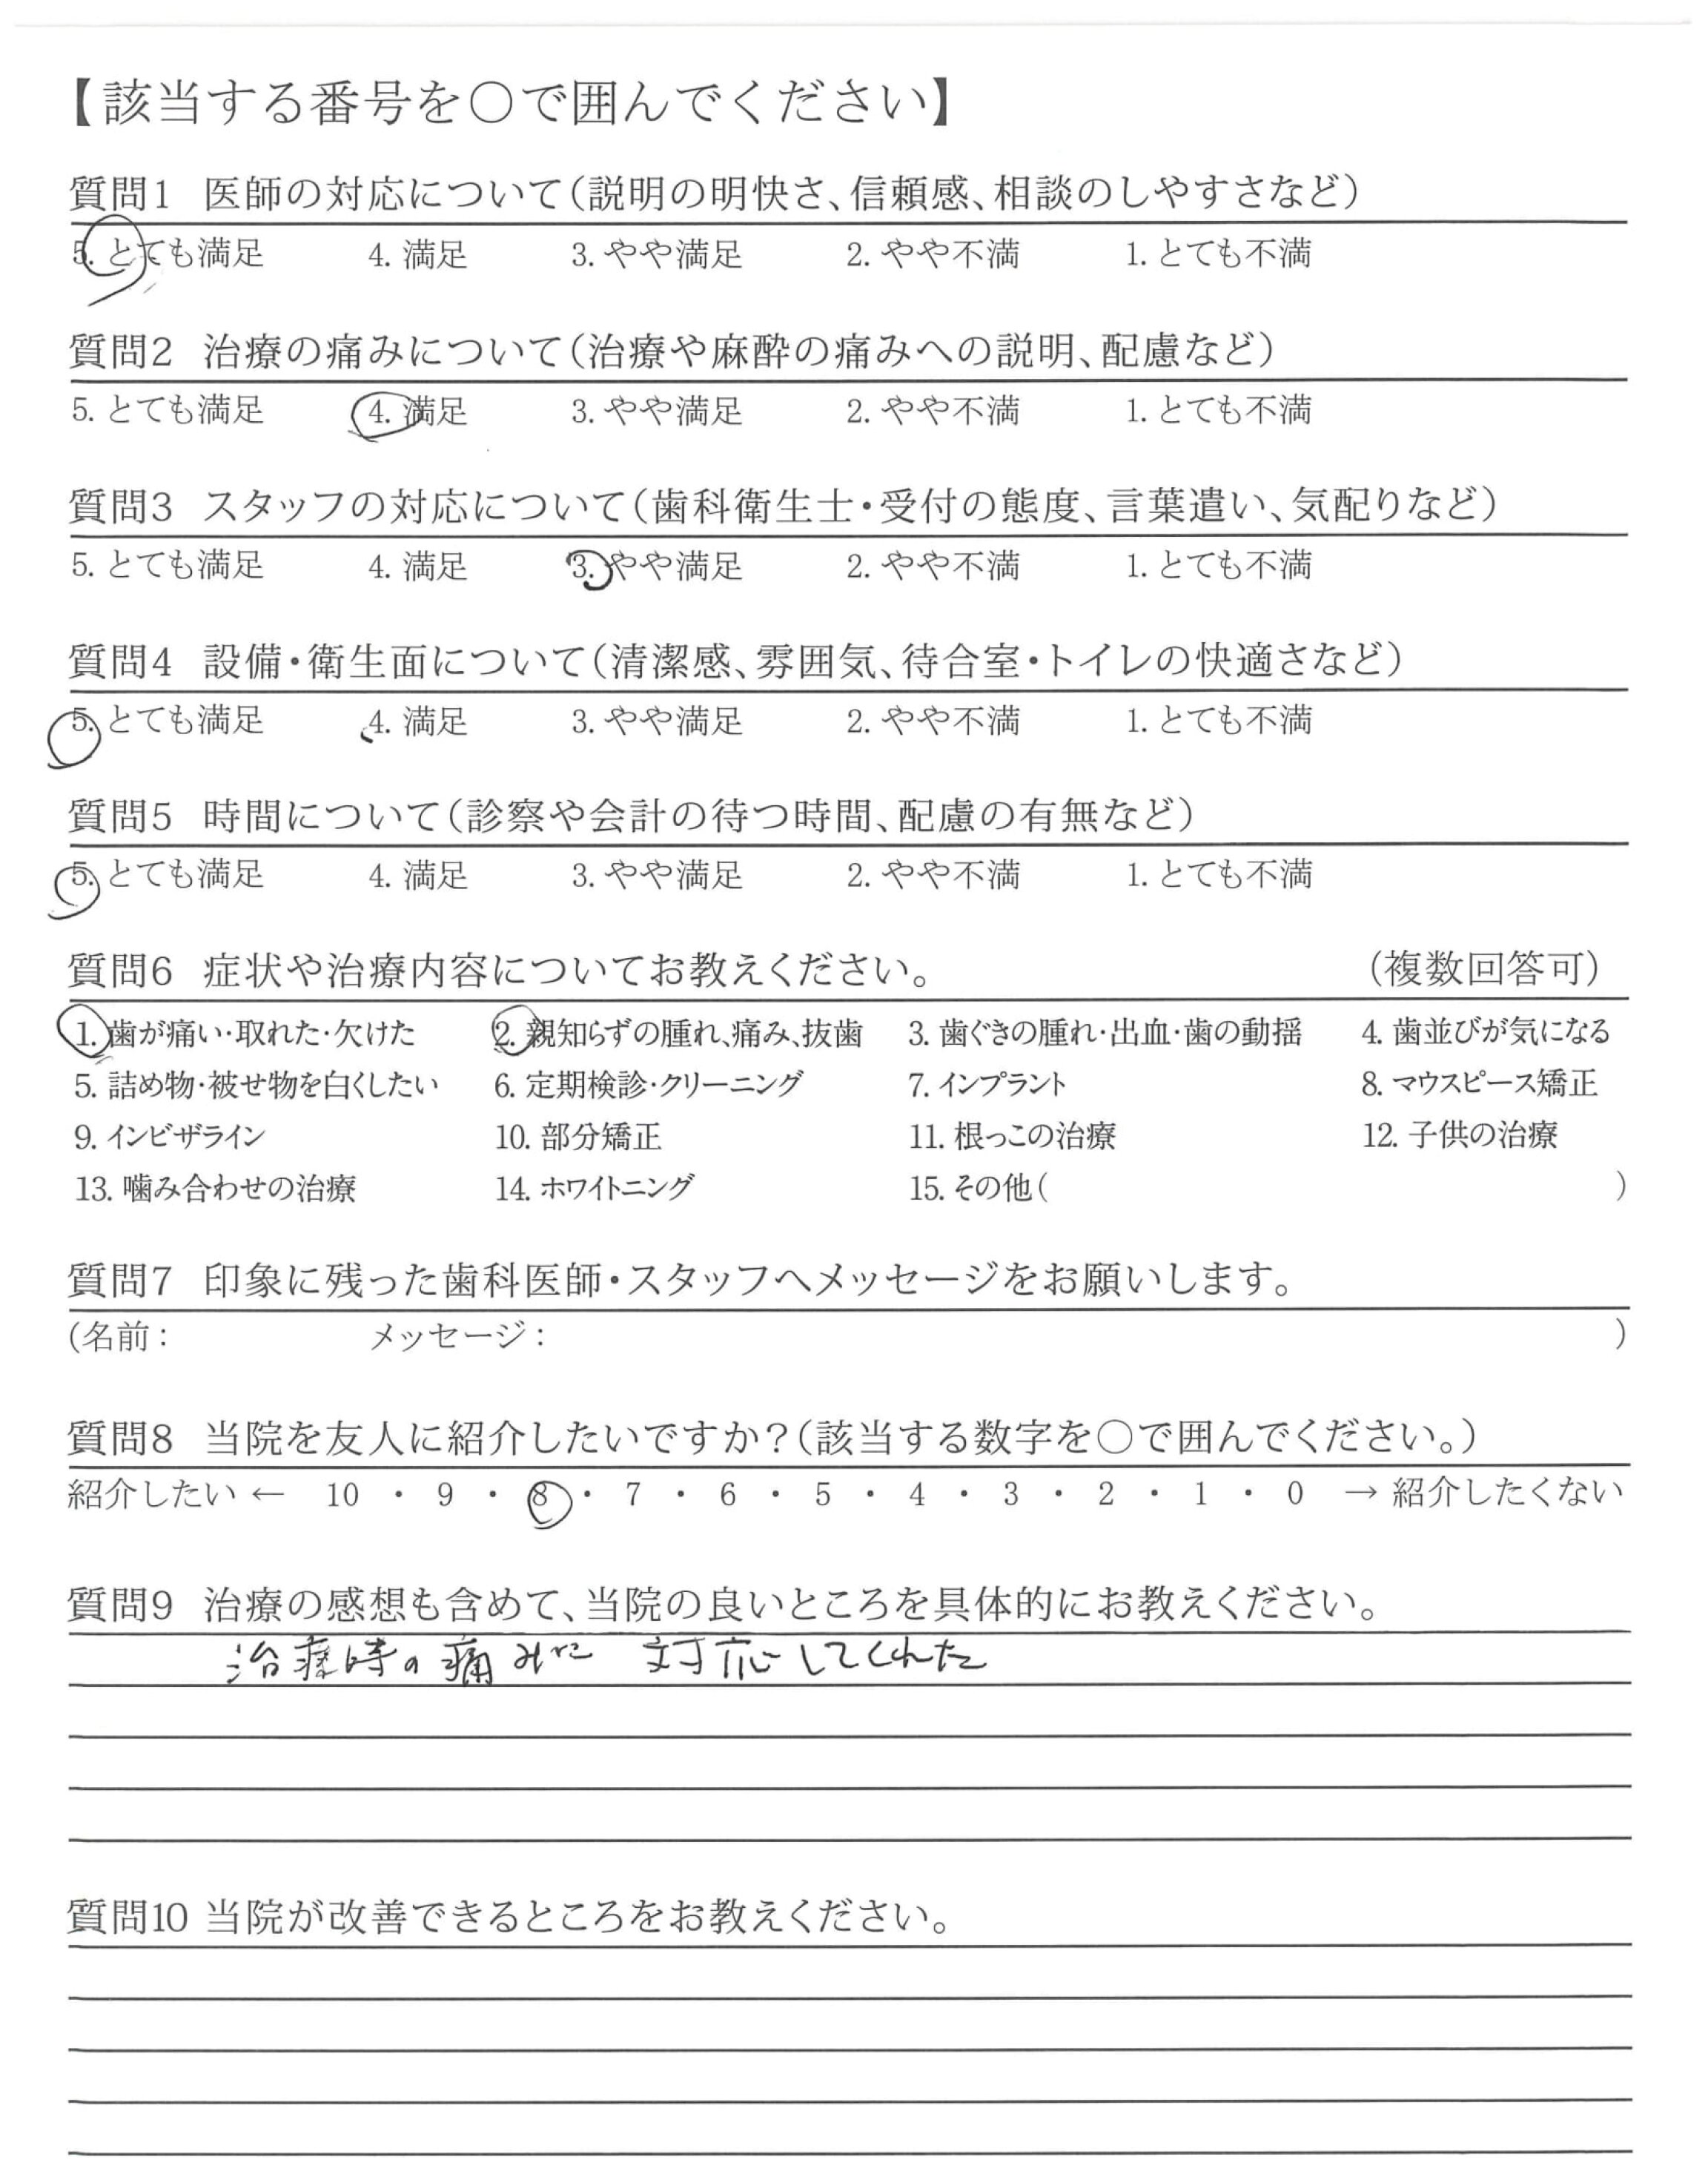 【該当する番号を○で囲んでください】
質問1 医師の対応について(説明の明快さ、信頼感、相談のしやすさなど)
5. とても満足 4. 満足 3. やや満足 2. やや不満 1. とても不満
質問2 治療の痛みについて(治療や麻酔の痛みへの説明、配慮など)
5. とても満足 4. 満足 3. やや満足 2. やや不満 1. とても不満
質問3 スタッフの対応について(歯科衛生士・受付の態度、言葉遣い、気配りなど)
5. とても満足 4. 満足 3. やや満足 2. やや不満 1. とても不満
質問4 設備・衛生面について(清潔感、雰囲気、待合室・トイレの快適さなど)
5. とても満足 4. 満足 3. やや満足 2. やや不満 1. とても不満
質問5 時間について(診察や会計の待つ時間、配慮の有無など)
5. とても満足 4. 満足 3. やや満足 2. やや不満 1. とても不満
質問6 症状や治療内容についてお教えください。 (複数回答可)
1. 歯が痛い・取れた・欠けた 2. 親知らずの腫れ、痛み、抜歯 3. 歯ぐきの腫れ・出血・歯の動揺 4. 歯並びが気になる
5. 詰め物・被せ物を白くしたい 6. 定期検診・クリーニング 7. インプラント 8. マウスピース矯正
9. インビザライン 10. 部分矯正 11. 根っこの治療 12. 子供の治療
13. 噛み合わせの治療 14. ホワイトニング 15. その他( )
質問7 印象に残った歯科医師・スタッフへメッセージをお願いします。
(名前: メッセージ: )
質問8 当院を友人に紹介したいですか?(該当する数字を○で囲んでください。)
紹介したい ← 10 ・ 9 ・ 8 ・ 7 ・ 6 ・ 5 ・ 4 ・ 3 ・ 2 ・ 1 ・ 0 → 紹介したくない
質問9 治療の感想も含めて、当院の良いところを具体的にお教えください。
治療時の痛みに 対応してくれた
質問10 当院が改善できるところをお教えください。